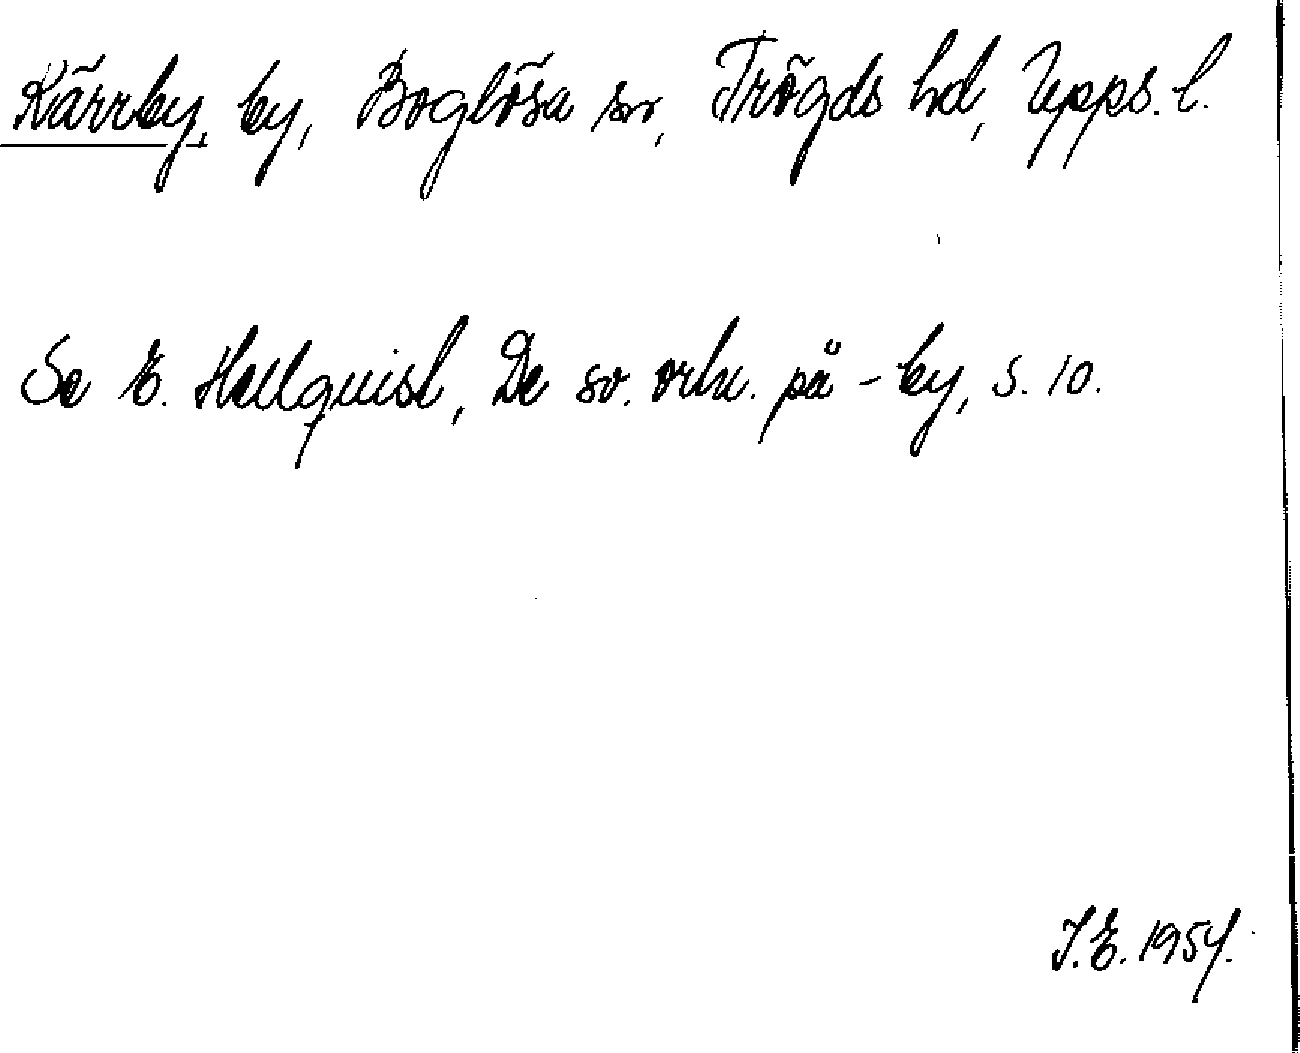 Kärrby, by, Boglösa sn, Trögds hd, Upps. l.
Se E. Hellquist, De sv. ortn. på -by, s. 10.
I.E. 1954.